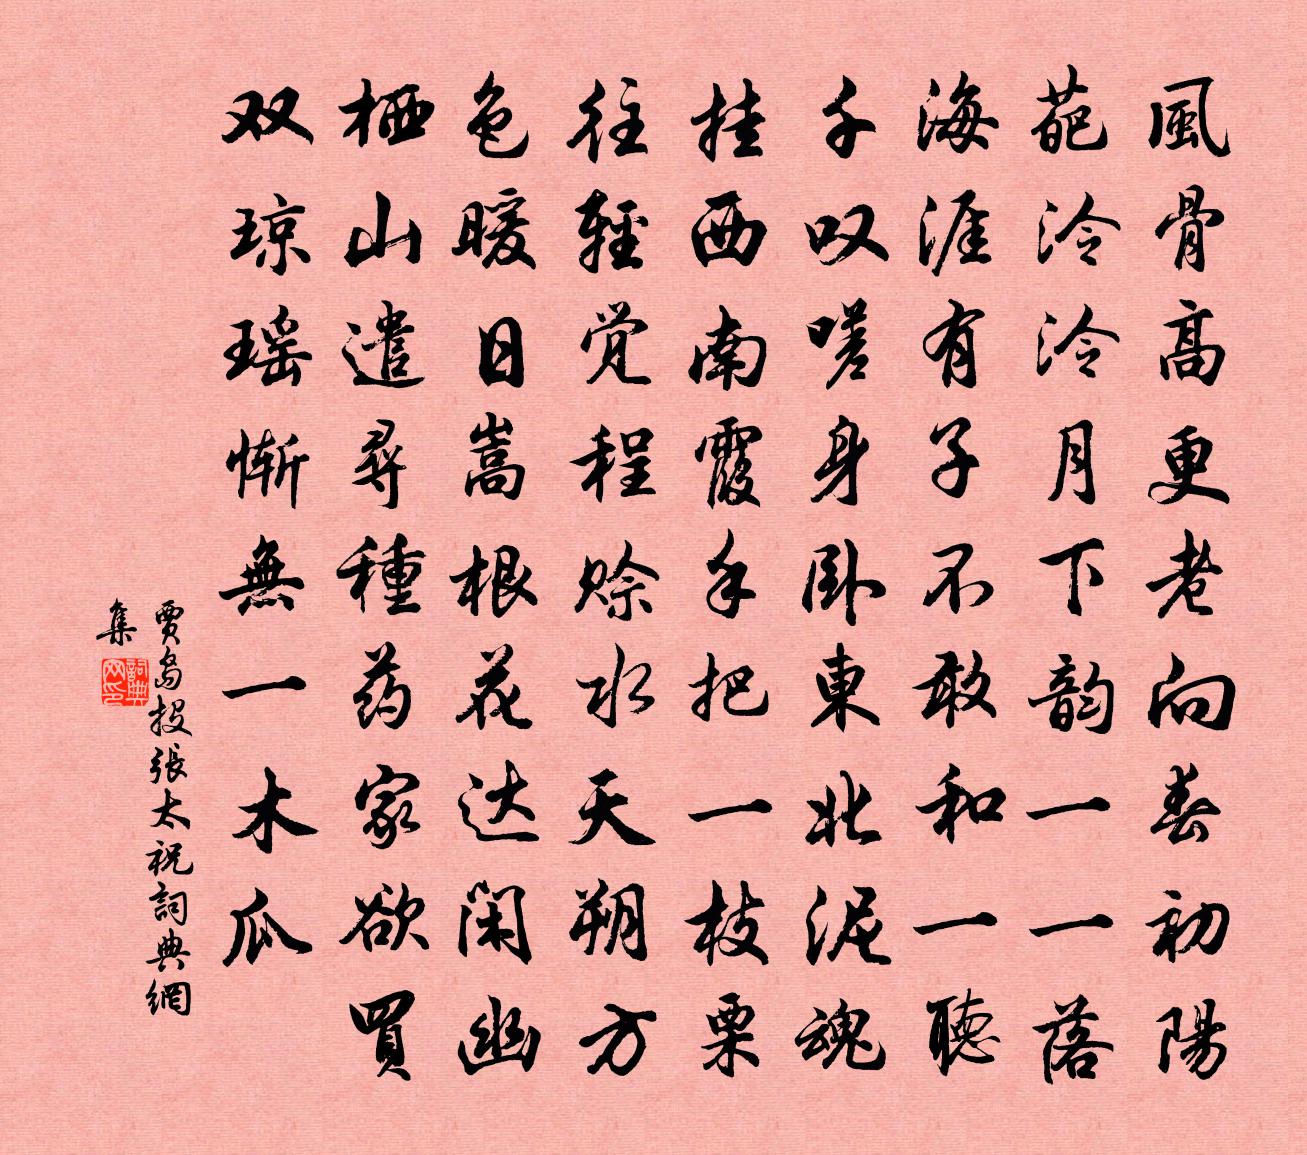 風骨高更老向春初陽
葩泠泠月下韵一一落
海涯有子不敢和一聽
千叹嗟身卧東北泥魂
挂西南霞手把一枝栗
往輕觉程赊水天朔方
色暖日嵩根花达闲幽
栖山遣尋種药家欲買
双琼瑶惭無一木瓜
賈岛投張太祝詞典網
集
詞典网印